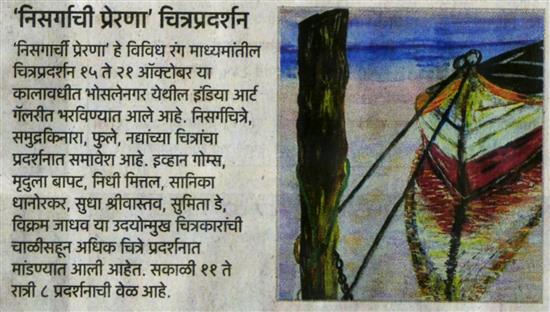 ‘निसर्गाची प्रेरणा’ चित्रप्रदर्शन
‘निसगार्ची प्रेरणा’ हे विविध रंग माध्यमांतील
चित्रप्रदर्शन १५ ते २१ ऑक्टोबर या
कालावधीत भोसलेनगर येथील इंडिया आर्ट
गॅलरीत भरविण्यात आले आहे. निसर्गचित्रे,
समुद्रकिनारा, फुले, नद्यांच्या चित्रांचा
प्रदर्शनात समावेश आहे. इव्हान गोम्स,
मृदुला बापट, निधी मित्तल, सानिका
धानोरकर, सुधा श्रीवास्तव, सुमिता डे,
विक्रम जाधव या उदयोन्मुख चित्रकारांची
चाळीसहून अधिक चित्रे प्रदर्शनात
मांडण्यात आली आहेत. सकाळी ११ ते
रात्री ८ प्रदर्शनाची वेळ आहे.